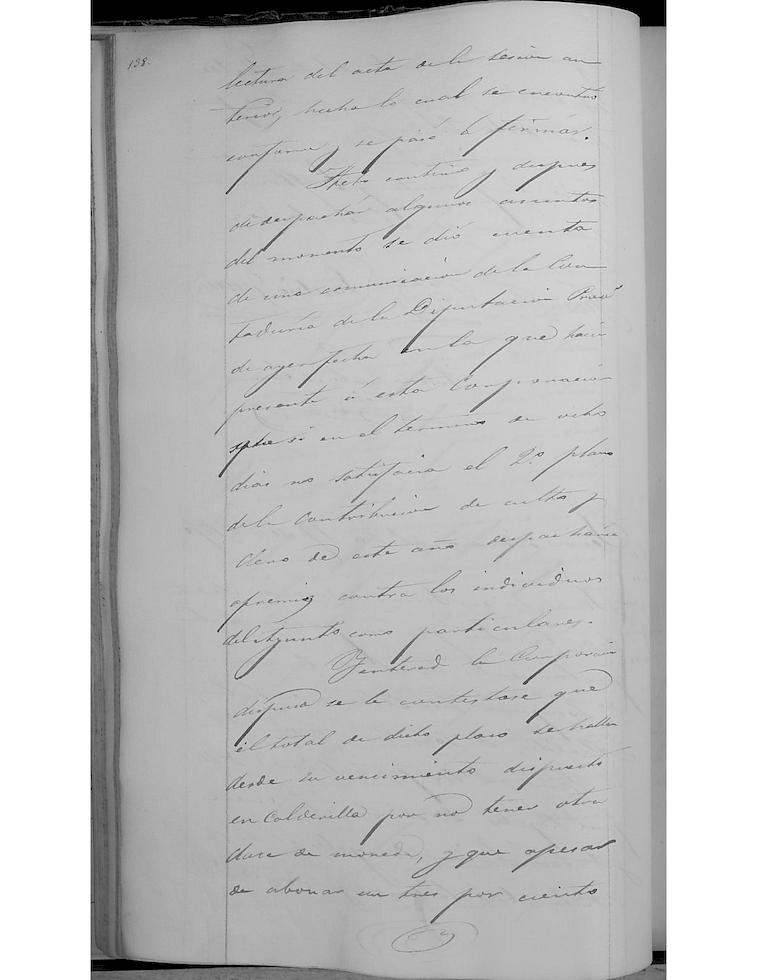 138.
lectura del acta de la sesion an
terior, hecho lo cual se encontró
conforme y se pasó á firmar.
continuo y despues
de despachár algunos asuntos
del momento se dió cuenta
de una comunicacion de la Con
taduria de la Diputacion Provl
de ayer fecha en la que hacia
presente á esta Corporacion
que si en el termino de ocho
dias no satisfacia el 2.º plazo
de la Contribucion de culto y
clero de este año despacharia
apremio contra los individuos
del Ayunto como particulares.
Y enterad la Corporacion
dispuso se le contestase que
el total de dicho plazo se halla
desde su vencimiento dispuesto
en Calderilla por no tener otra
clase de moneda, y que apesar
de abonar un tres por ciento